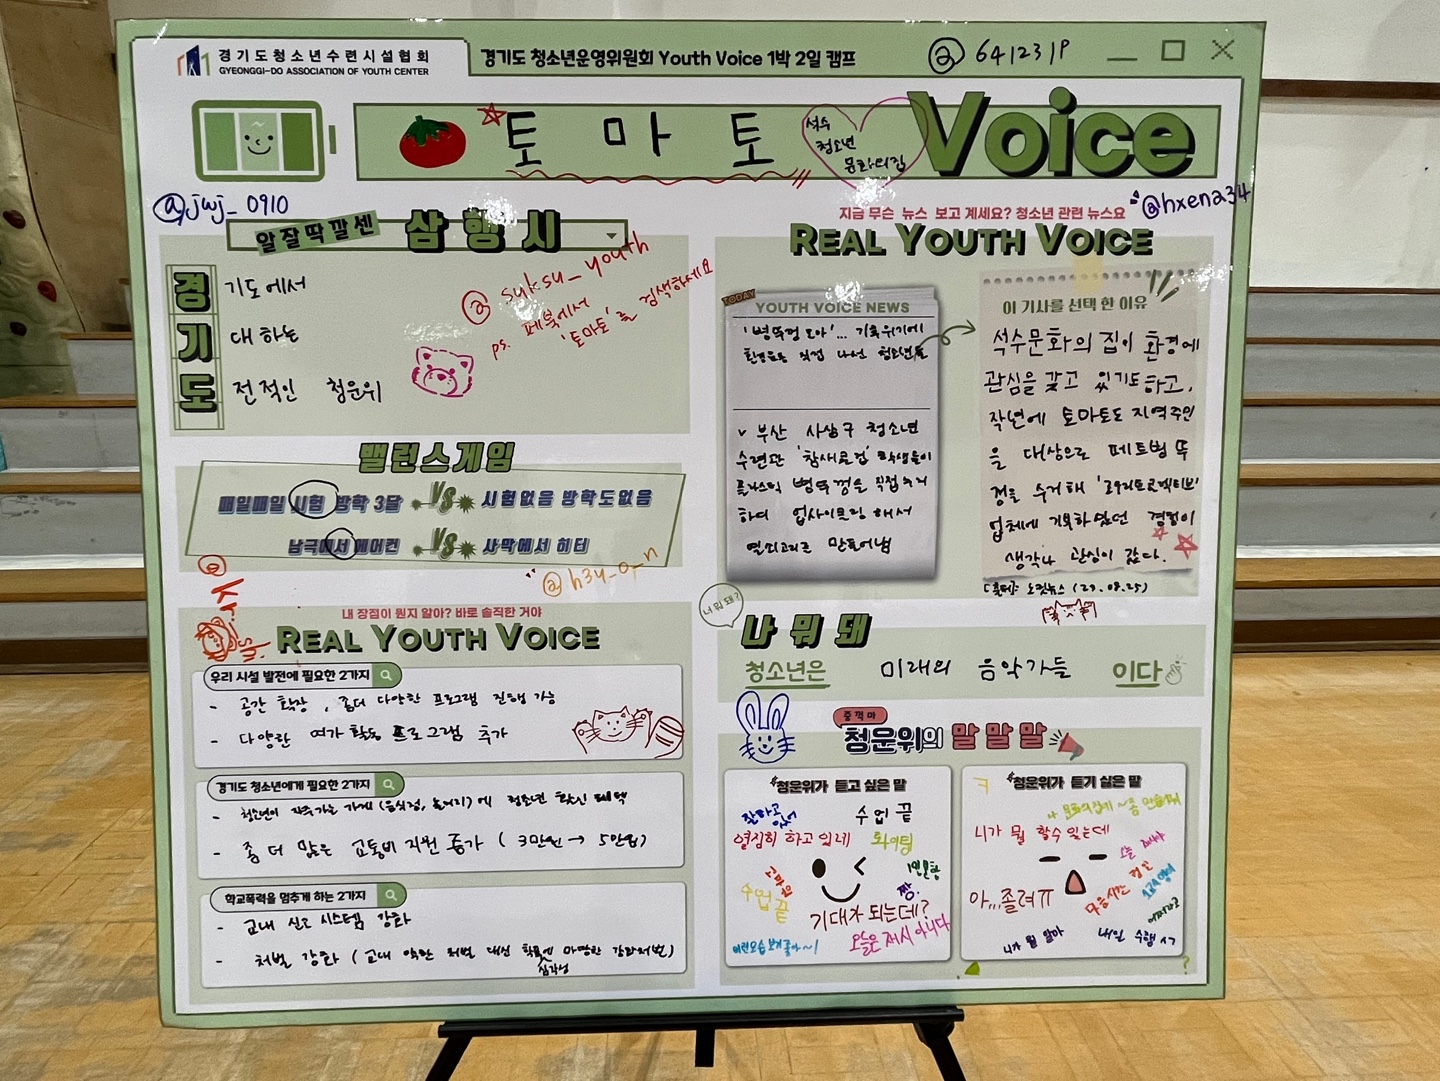 경기도청소년수련시설협회
GYEONGGI-DO ASSOCIATION OF YOUTH CENTER
경기도 청소년운영위원회 Youth Voice 1박 2일 캠프
@ 641231P
토 마 토
석수
청소년
문화의집
Voice
@jwj_0910
@hxena34
알잘딱깔센 삼행시
경 기도에서
기 대 하는
도 전적인 청운위
@ suksu_youth
ps. 페북에서
'토마토'를 검색하세요
밸런스게임
매일매일 시험 방학 3달 VS 시험없음 방학도없음
남극에서 에어컨 VS 사막에서 히터
@h3y_o_n
내 장점이 뭔지 알아? 바로 솔직한 거야
REAL YOUTH VOICE
우리 시설 발전에 필요한 2가지
- 공간 확장, 좀더 다양한 프로그램 진행 가능
- 다양한 여가 활동 프로그램 추가
경기도 청소년에게 필요한 2가지
- 청소년이 자주가는 가게 (음식점, 놀거리)에 청소년 할인 혜택
- 좀 더 많은 교통비 지원 증가 (3만원 → 5만원)
학교폭력을 멈추게 하는 2가지
- 교내 신고 시스템 강화
- 처벌 강화 (교내 약한 처벌 대신 학폭에 마땅한 강화처벌)
심각성
지금 무슨 뉴스 보고 계세요? 청소년 관련 뉴스요
REAL YOUTH VOICE
TODAY
YOUTH VOICE NEWS
'병뚜껑 모아'... 기후위기에
환경운동 직접 나선 청소년들
v 부산 사상구 청소년
수련관 '참새클럽' 학생들이
플라스틱 병뚜껑을 직접 수거
하여 업사이클링 해서
열쇠고리로 만들어냄
이 기사를 선택한 이유
석수문화의 집이 환경에
관심을 갖고 있기도 하고,
작년에 토마토도 지역주민
을 대상으로 페트병 뚜
껑을 수거해
업체에 기부하였던 경험이
생각나 관심이 갔다.
출처: 노컷뉴스 (23.08.25)
너 뭐 돼?
나 뭐 돼
청소년은 미래의 음악가들 이다
중꺾마
청운위의 말말말
청운위가 듣고 싶은 말
잘하고 있어
수업 끝
열심히 하고 있네
화이팅
고마워
수업 끝
짱
기대가 되는데?
오늘은 재시 아니다
이런모습 보기 좋아~!
청운위가 듣기 싫은 말
니가 뭘 할수 있는데
오늘 재시
아,,,졸려ㅠ
니가 뭘 알아
내일 수행 ㅅㄱ